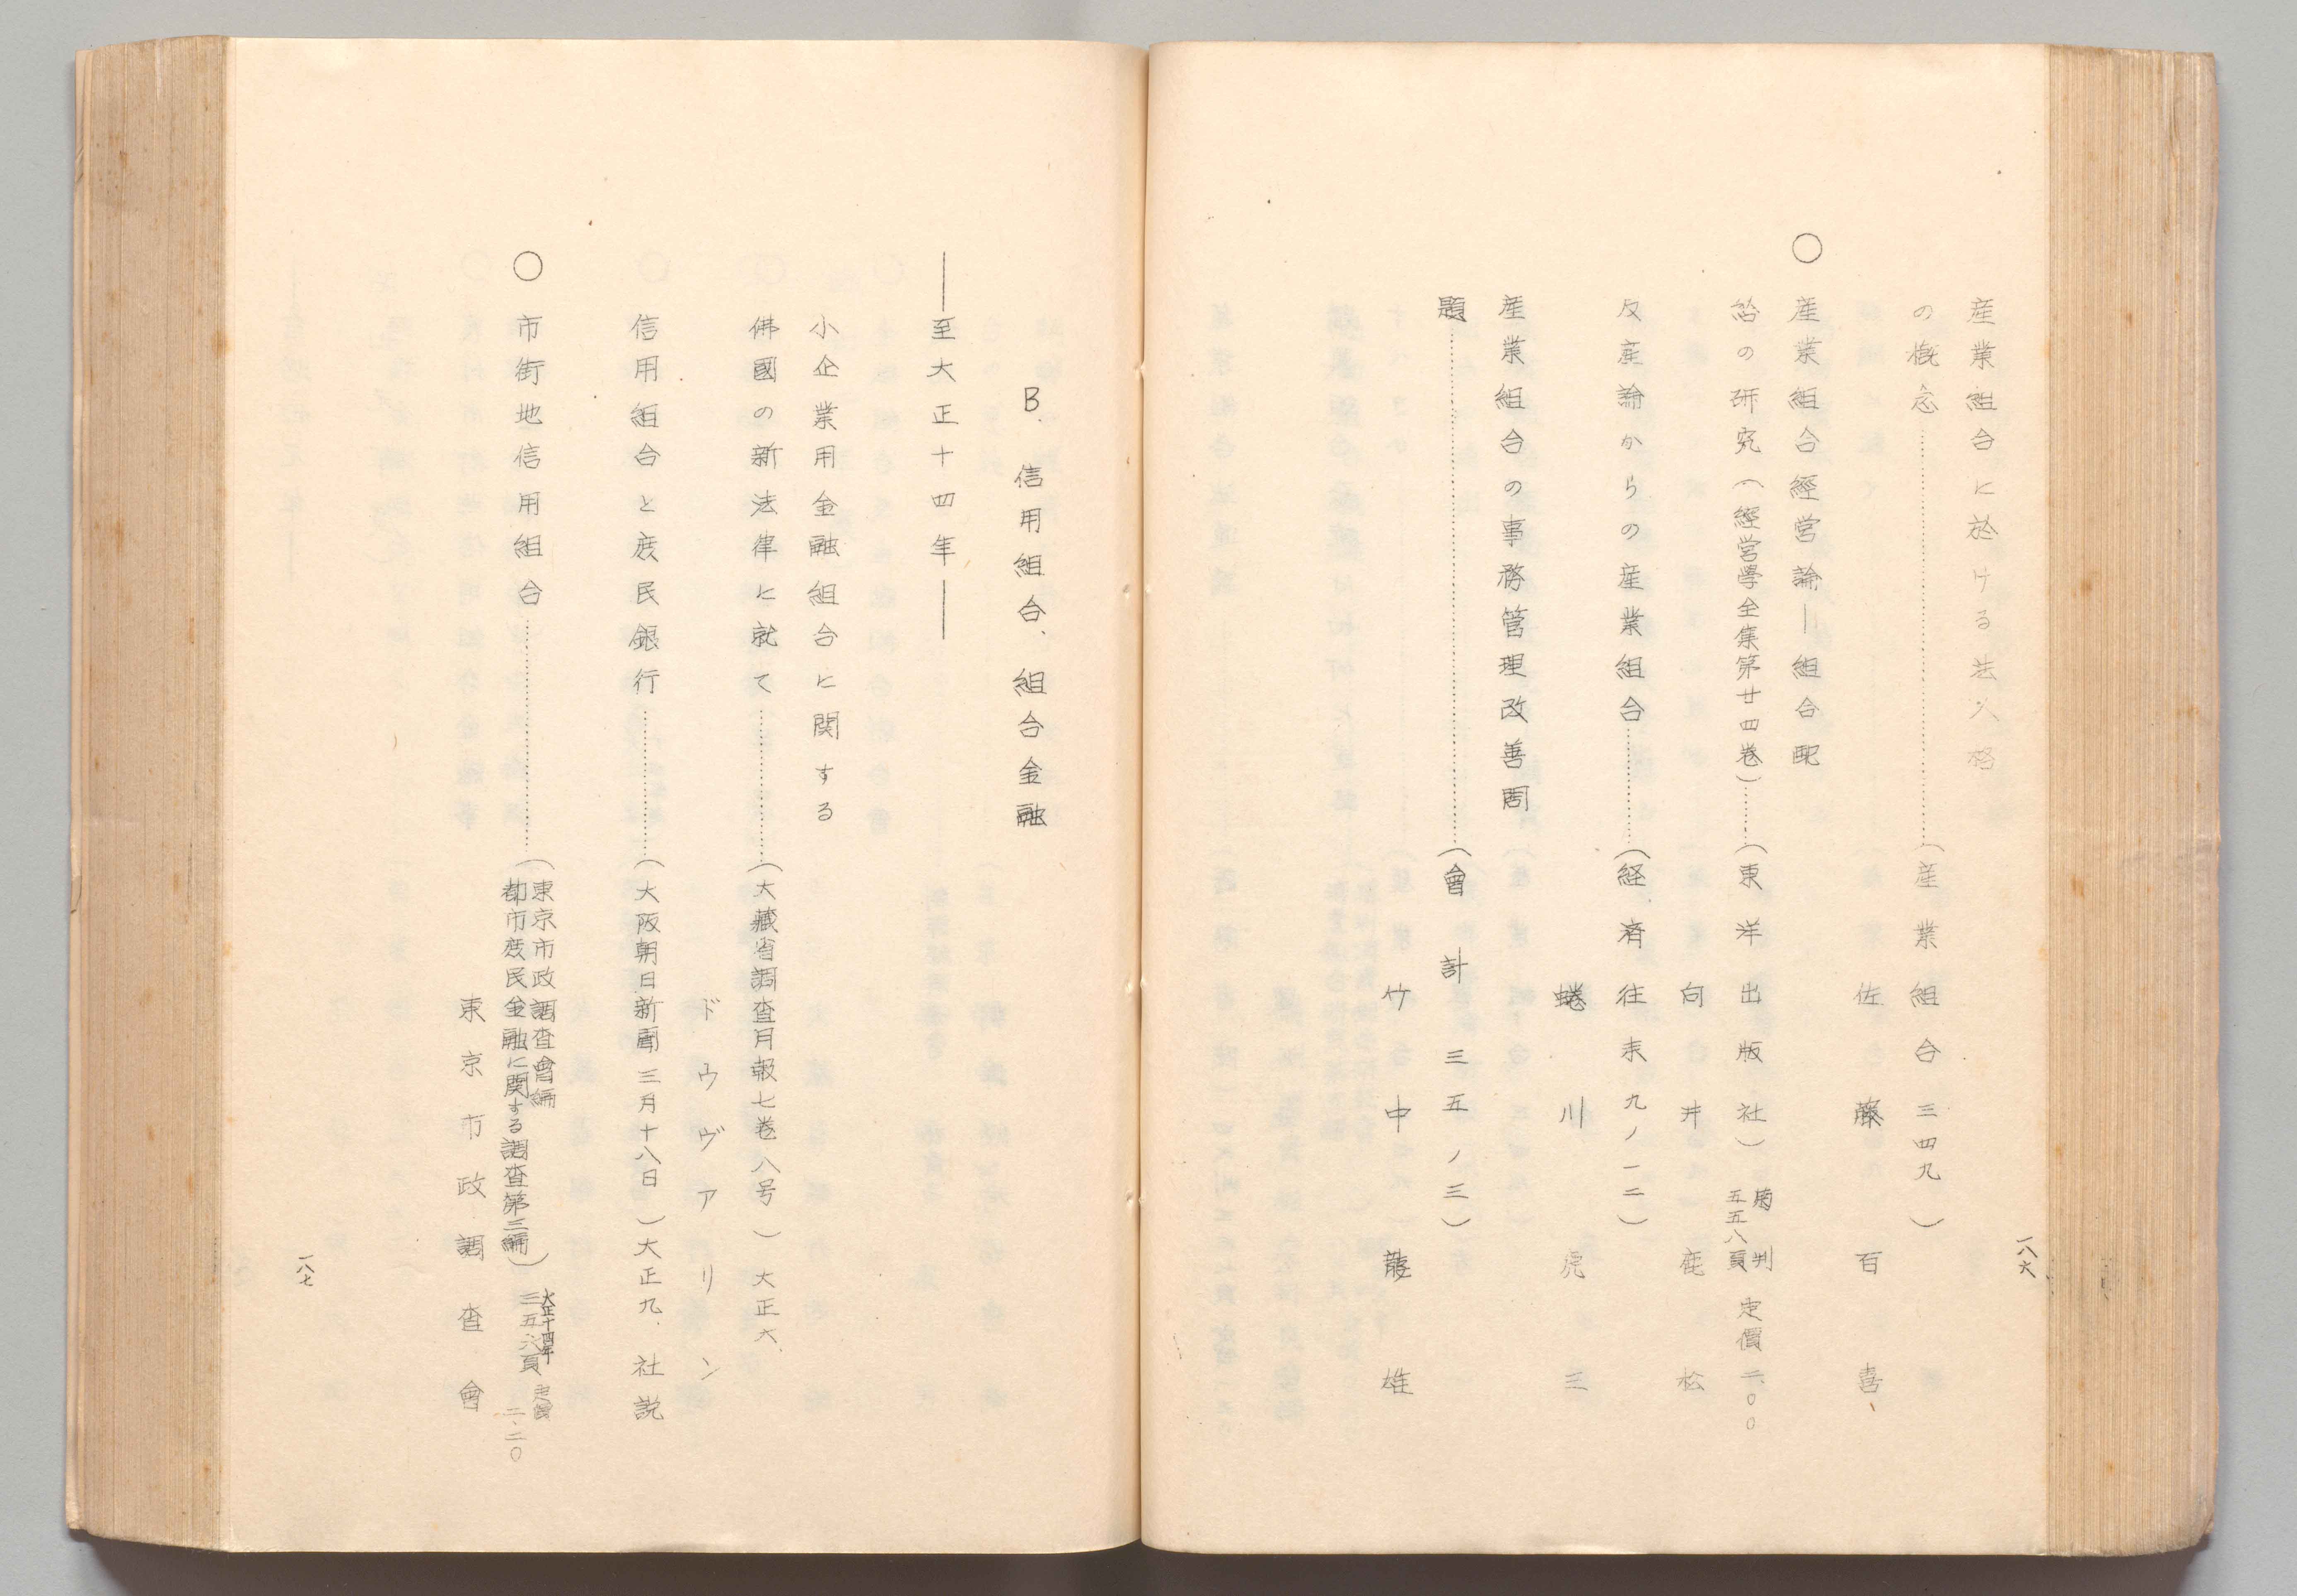 産業組合に於ける法人格
の概念……(産業組合三四九)
佐藤百喜、
○産業組合經営論―組合配
給の研究(經営學全集第廿四巻)……(東洋出版社) 菊判 五五八頁 定價二、〇〇
向井鹿松
反産論からの産業組合……(経済往来九ノ一二)
蜷川虎三
産業組合の事務管理改善問
題……(會計三五ノ三)
竹中龍雄
一八六
B. 信用組合、組合金融
―至大正十四年―
小企業用金融組合に関する
佛國の新法律に就て……(大藏省調査月報七巻八号) 大正六、
ドウヴアリン
信用組合と庶民銀行……(大阪朝日新聞三月十八日)大正九、社説
○市街地信用組合……(東京市政調査會編 都市庶民金融に関する調査第三編) 大正十四年 三五六頁 定價二、二〇
東京市政調査會
一八七